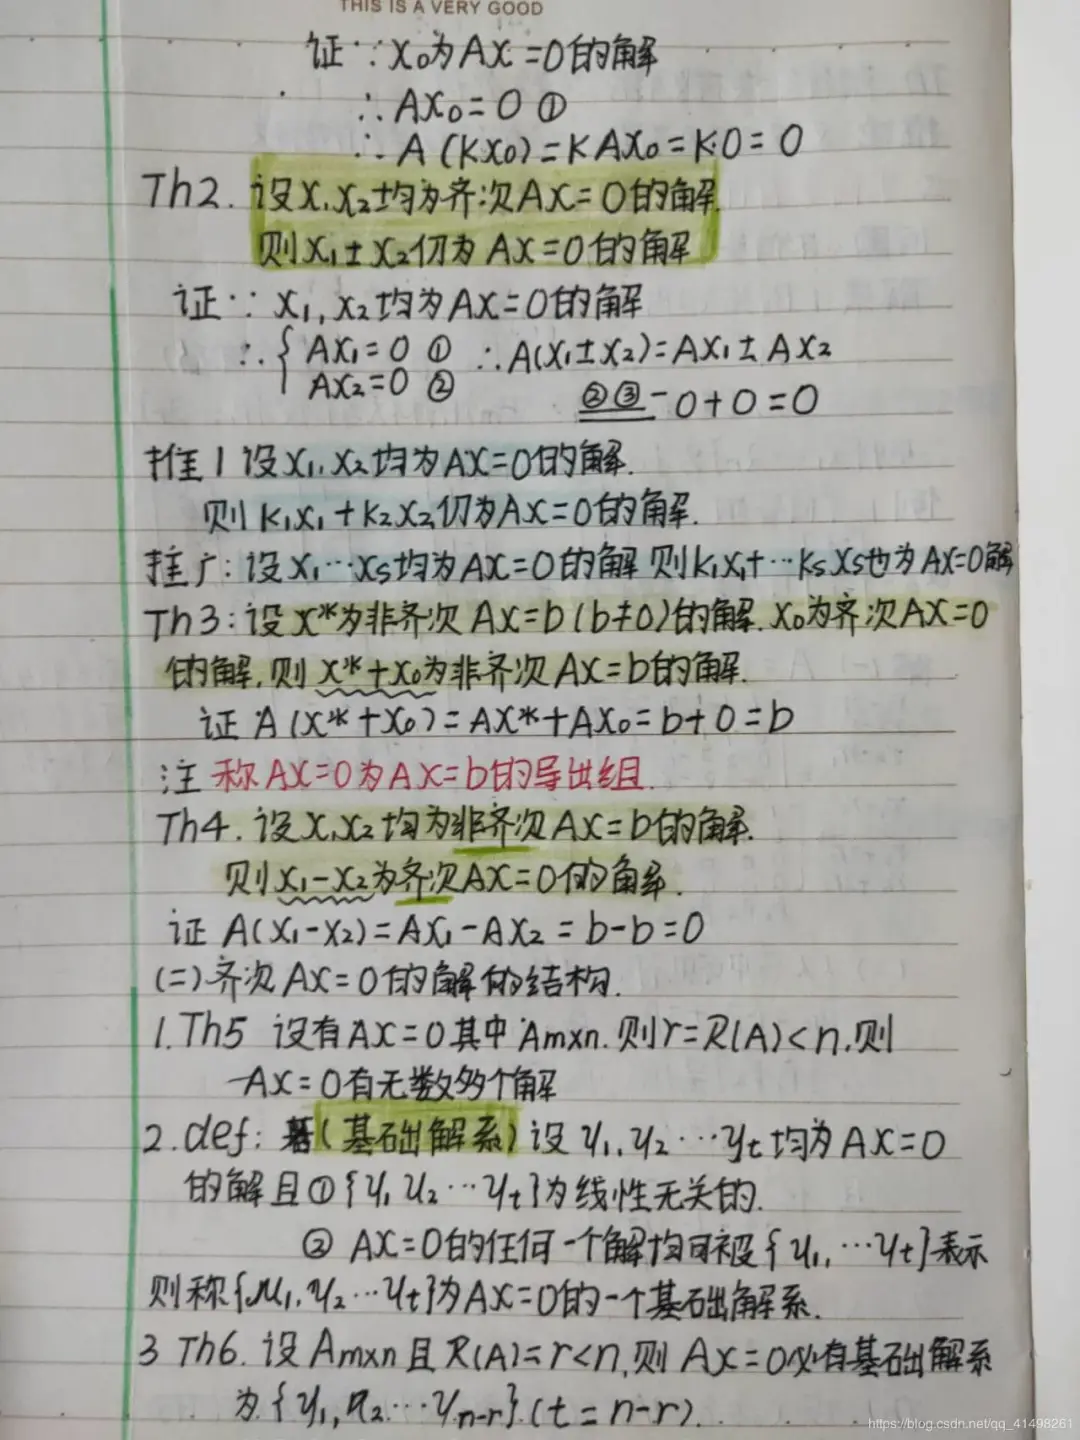 THIS IS A VERY GOOD
证∵X₀为AX=0的解
∴AX₀=0 ①
∴A(KX₀)=KAX₀=K·0=0
Th2. 设X₁X₂均为齐次AX=0的解.
则X₁±X₂仍为AX=0的解
证∵X₁,X₂均为AX=0的解
∴{AX₁=0 ① ∴A(X₁±X₂)=AX₁±AX₂
AX₂=0 ② ②③ 0+0=0
推1 设X₁,X₂均为AX=0的解.
则K₁X₁+K₂X₂仍为AX=0的解.
推广:设X₁…Xs均为AX=0的解则K₁X₁+…KsXs也为AX=0解
Th3:设X*为非齐次AX=b(b≠0)的解.X₀为齐次AX=0
的解,则X*+X₀为非齐次AX=b的解.
证A(X*+X₀)=AX*+AX₀=b+0=b
注 称AX=0为AX=b的导出组.
Th4.设X₁X₂均为非齐次AX=b的解.
则X₁-X₂为齐次AX=0的解.
证A(X₁-X₂)=AX₁-AX₂=b-b=0
(二)齐次AX=0的解的结构.
1.Th5 设有AX=0其中Amxn.则r=R(A)<n,则
AX=0有无数多个解
2.def:(基础解系)设y₁,y₂…yt均为AX=0
的解且①{y₁y₂…yt}为线性无关的.
② AX=0的任何一个解均可被{y₁,…yt}表示
则称{y₁,y₂…yt}为AX=0的一个基础解系.
3 Th6.设Amxn且R(A)=r<n,则AX=0必有基础解系
为{y₁,y₂…yn-r}.(t=n-r).
https://blog.csdn.net/qq_41498261